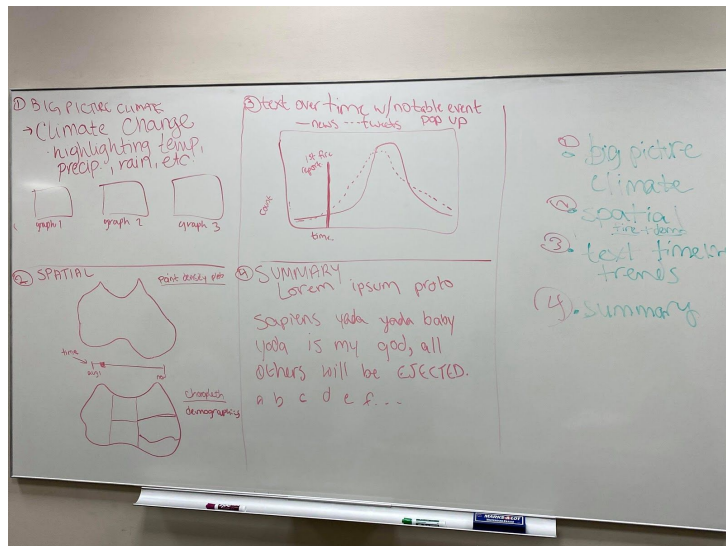 ① BIG PICTURE CLIMATE
→ Climate Change
· highlighting temp,
precip., rain, etc!
graph 1
graph 2
graph 3
② SPATIAL
Point density plots
time
aug 1
choropleth
demographics
③ text over time w/notable event
pop up
— news --- tweets
1st fire
report
count
time
④ SUMMARY
Lorem ipsum proto
sapiens yada yada baby
yoda is my god, all
others will be EJECTED.
a b c d e f...
① big picture
climate
② spatial
time + demo
③ text timeline
trends
④ summary
MARKS-A-LOT